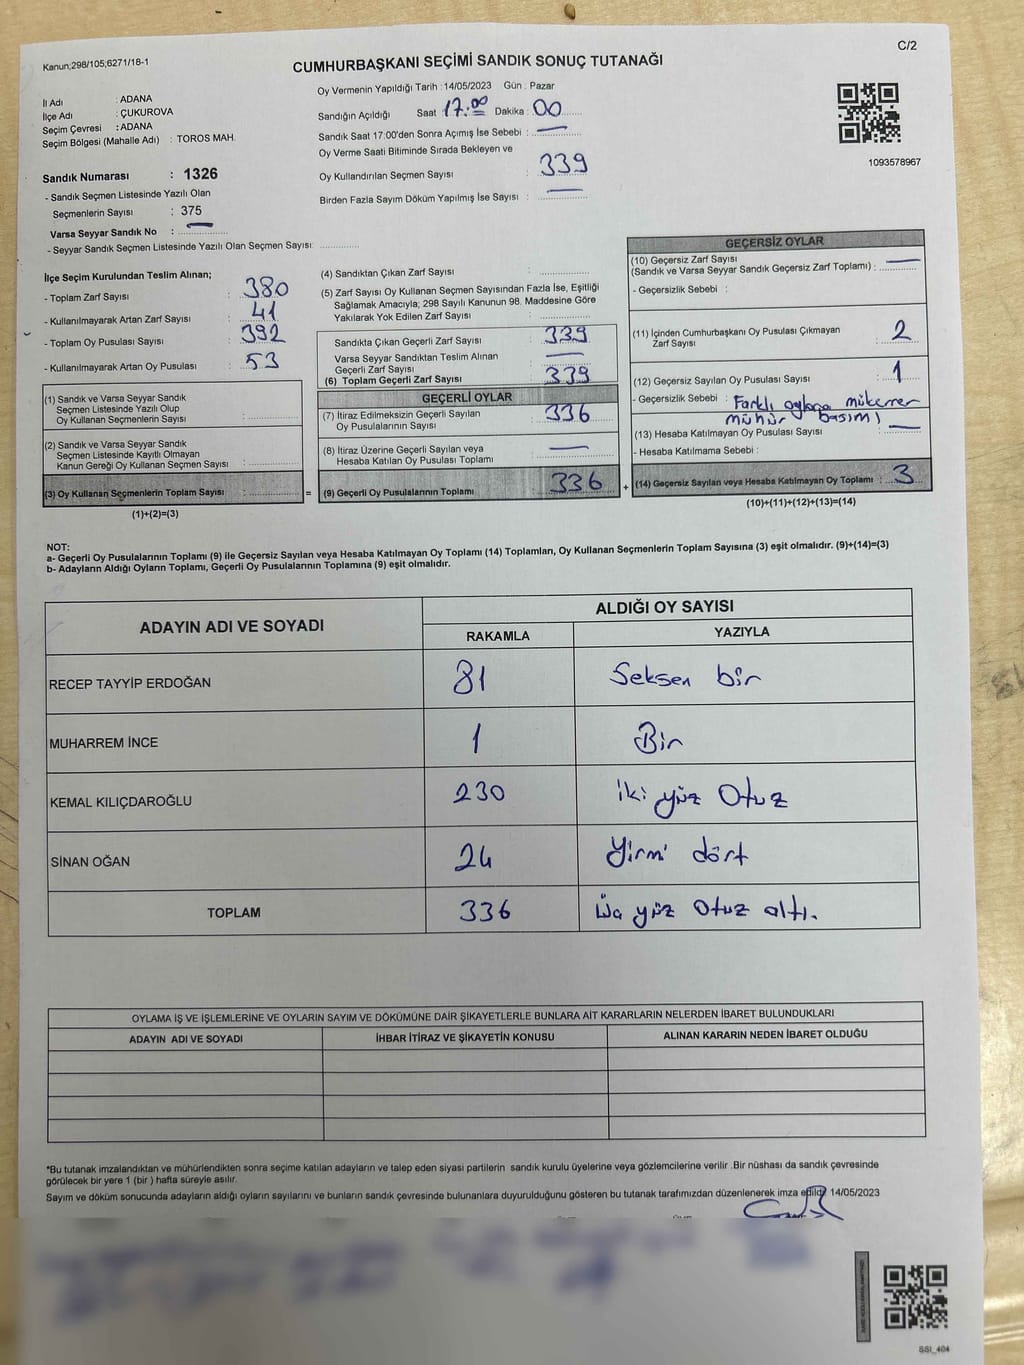 C/2
Kanun;298/105;6271/18-1
CUMHURBAŞKANI SEÇİMİ SANDIK SONUÇ TUTANAĞI
İl Adı : ADANA
İlçe Adı : ÇUKUROVA
Seçim Çevresi : ADANA
Seçim Bölgesi (Mahalle Adı) : TOROS MAH.
Sandık Numarası : 1326
- Sandık Seçmen Listesinde Yazılı Olan
Seçmenlerin Sayısı : 375
Varsa Seyyar Sandık No : —
- Seyyar Sandık Seçmen Listesinde Yazılı Olan Seçmen Sayısı:
Oy Vermenin Yapıldığı Tarih :14/05/2023 Gün : Pazar
Sandığın Açıldığı Saat 17:00 Dakika : 00
Sandık Saat 17:00'den Sonra Açımış İse Sebebi : —
Oy Verme Saati Bitiminde Sırada Bekleyen ve
Oy Kullandırılan Seçmen Sayısı : 339
Birden Fazla Sayım Döküm Yapılmış İse Sayısı : —
1093578967
İlçe Seçim Kurulundan Teslim Alınan;
- Toplam Zarf Sayısı : 380
- Kullanılmayarak Artan Zarf Sayısı : 41
- Toplam Oy Pusulası Sayısı : 392
- Kullanılmayarak Artan Oy Pusulası : 53
(1) Sandık ve Varsa Seyyar Sandık
Seçmen Listesinde Yazılı Olup
Oy Kullanan Seçmenlerin Sayısı :
(2) Sandık ve Varsa Seyyar Sandık
Seçmen Listesinde Kayıtlı Olmayan
Kanun Gereği Oy Kullanan Seçmen Sayısı :
(3) Oy Kullanan Seçmenlerin Toplam Sayısı :
(1)+(2)=(3)
=
(4) Sandıktan Çıkan Zarf Sayısı :
(5) Zarf Sayısı Oy Kullanan Seçmen Sayısından Fazla İse, Eşitliği
Sağlamak Amacıyla; 298 Sayılı Kanunun 98. Maddesine Göre
Yakılarak Yok Edilen Zarf Sayısı :
Sandıkta Çıkan Geçerli Zarf Sayısı : 339
Varsa Seyyar Sandıktan Teslim Alınan
Geçerli Zarf Sayısı : —
(6) Toplam Geçerli Zarf Sayısı : 339
GEÇERLİ OYLAR
(7) İtiraz Edilmeksizin Geçerli Sayılan
Oy Pusulalarının Sayısı : 336
(8) İtiraz Üzerine Geçerli Sayılan veya
Hesaba Katılan Oy Pusulası Toplamı : —
(9) Geçerli Oy Pusulalarının Toplamı : 336
+
GEÇERSİZ OYLAR
(10) Geçersiz Zarf Sayısı
(Sandık ve Varsa Seyyar Sandık Geçersiz Zarf Toplamı) : —
- Geçersizlik Sebebi :
(11) İçinden Cumhurbaşkanı Oy Pusulası Çıkmayan
Zarf Sayısı : 2
(12) Geçersiz Sayılan Oy Pusulası Sayısı : 1
- Geçersizlik Sebebi : Farklı mükerrer
mühür basımı
(13) Hesaba Katılmayan Oy Pusulası Sayısı : —
- Hesaba Katılmama Sebebi :
(14) Geçersiz Sayılan veya Hesaba Katılmayan Oy Toplamı : 3
(10)+(11)+(12)+(13)=(14)
NOT:
a- Geçerli Oy Pusulalarının Toplamı (9) ile Geçersiz Sayılan veya Hesaba Katılmayan Oy Toplamı (14) Toplamları, Oy Kullanan Seçmenlerin Toplam Sayısına (3) eşit olmalıdır. (9)+(14)=(3)
b- Adayların Aldığı Oyların Toplamı, Geçerli Oy Pusulalarının Toplamına (9) eşit olmalıdır.
ADAYIN ADI VE SOYADI
ALDIĞI OY SAYISI
RAKAMLA YAZIYLA
RECEP TAYYİP ERDOĞAN 81 Seksen bir
MUHARREM İNCE 1 Bir
KEMAL KILIÇDAROĞLU 230 iki yüz Otuz
SİNAN OĞAN 24 Yirmi dört
TOPLAM 336 Üç yüz Otuz altı.
OYLAMA İŞ VE İŞLEMLERİNE VE OYLARIN SAYIM VE DÖKÜMÜNE DAİR ŞİKAYETLERLE BUNLARA AİT KARARLARIN NELERDEN İBARET BULUNDUKLARI
ADAYIN ADI VE SOYADI İHBAR İTİRAZ VE ŞİKAYETİN KONUSU ALINAN KARARIN NEDEN İBARET OLDUĞU
*Bu tutanak imzalandıktan ve mühürlendikten sonra seçime katılan adayların ve talep eden siyasi partilerin sandık kurulu üyelerine veya gözlemcilerine verilir .Bir nüshası da sandık çevresinde
görülecek bir yere 1 (bir ) hafta süreyle asılır.
Sayım ve döküm sonucunda adayların aldığı oyların sayılarını ve bunların sandık çevresinde bulunanlara duyurulduğunu gösteren bu tutanak tarafımızdan düzenlenerek imza edildi. 14/05/2023
SSI_404